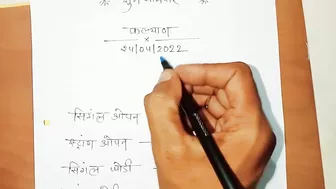 शुभ
कल्याण
×
२५/०५/2022
सिंगल ओपन
स्ट्रांग ओपन
सिंगल जोडी